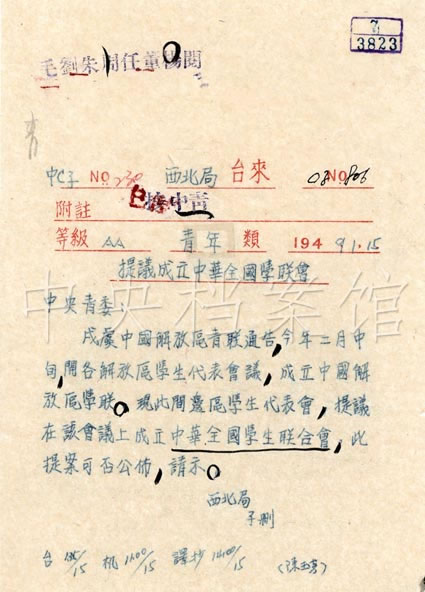 7
3823
毛劉朱周任董楊閱
中C子 NO 230 西北局 台來 NO 806
附註 已轉中青
等級 AA 青年 類 194 9 1.15
提議成立中華全國學聯會
中央青委:
戌虞中國解放區青联通告,今年二月中
旬,開各解放區學生代表會議,成立中國解
放區學联。現此間邊區學生代表會,提議
在該會議上成立中華全國學生联合會,此
提案可否公佈,請示。
西北局
子刪
台 /15 机 1100/15 譯抄 1400/15
中央档案馆